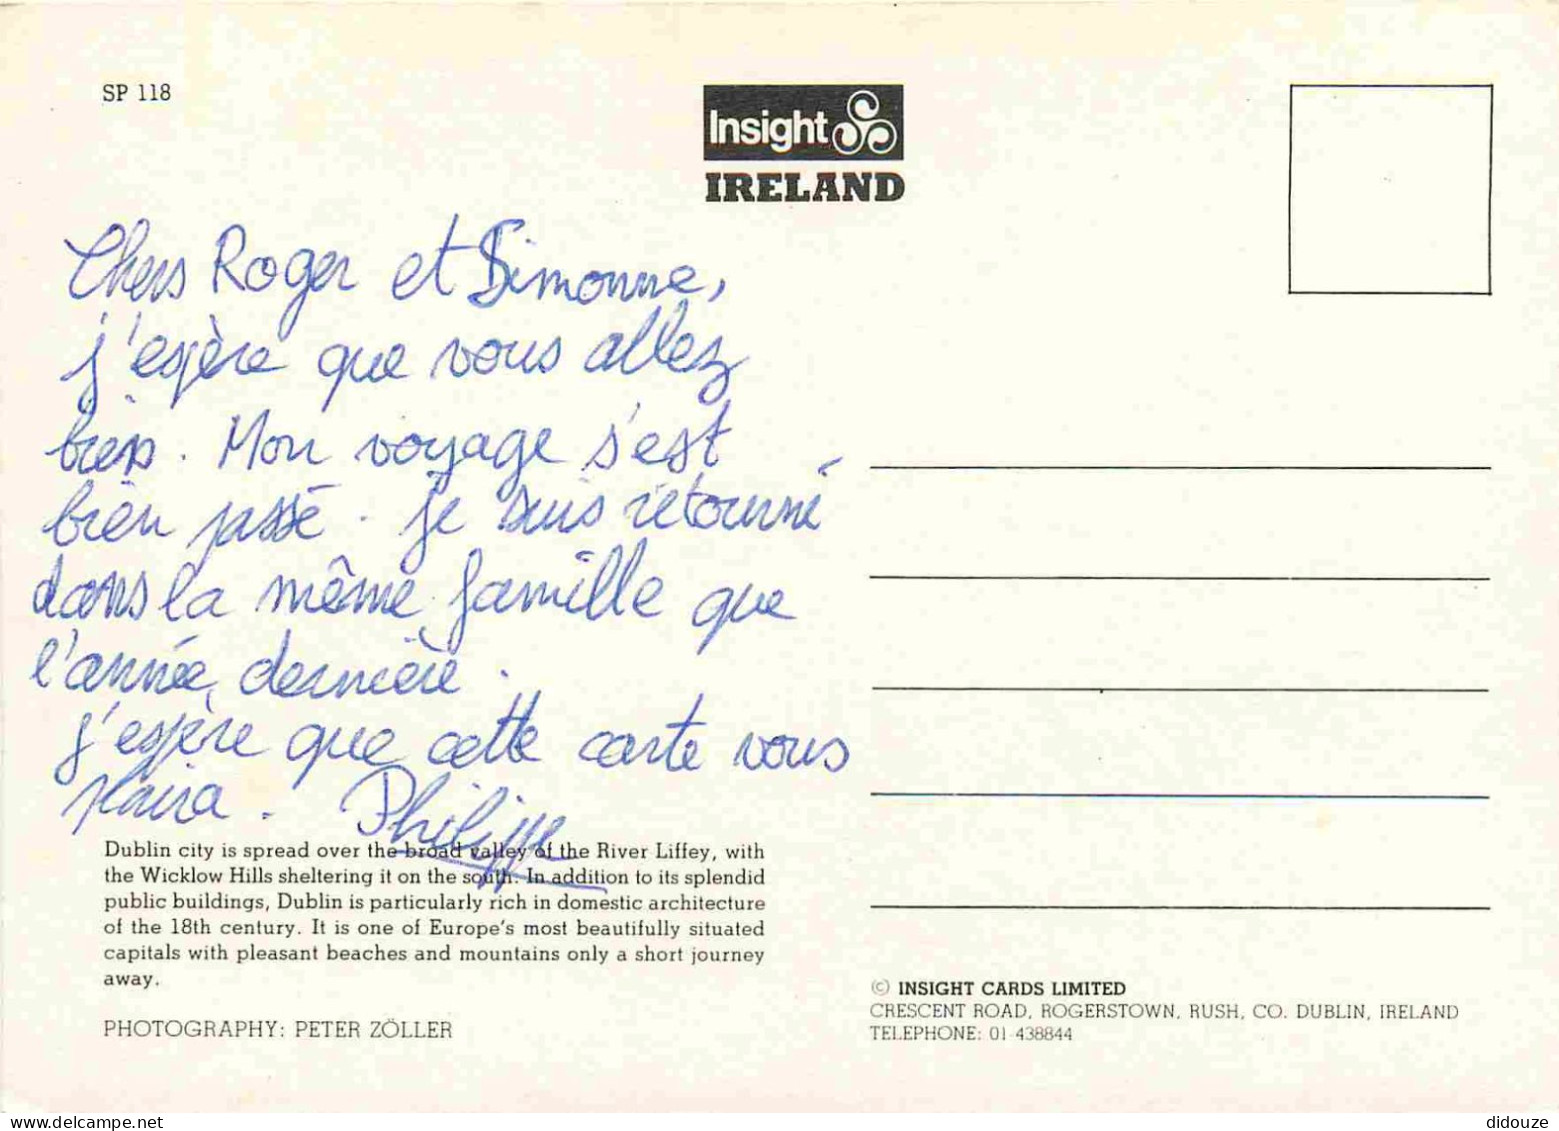 SP 118
Insight
IRELAND
Chers Roger et Simonne,
j'espère que vous allez
bien. Mon voyage s'est
bien passé. je suis retourné
dans la même famille que
l'année dernière.
j'espère que cette carte vous
plaira. Philippe
Dublin city is spread over the broad valley of the River Liffey, with
the Wicklow Hills sheltering it on the south. In addition to its splendid
public buildings, Dublin is particularly rich in domestic architecture
of the 18th century. It is one of Europe's most beautifully situated
capitals with pleasant beaches and mountains only a short journey
away.
PHOTOGRAPHY: PETER ZÖLLER
© INSIGHT CARDS LIMITED
CRESCENT ROAD, ROGERSTOWN, RUSH, CO. DUBLIN, IRELAND
TELEPHONE: 01-438844
didouze